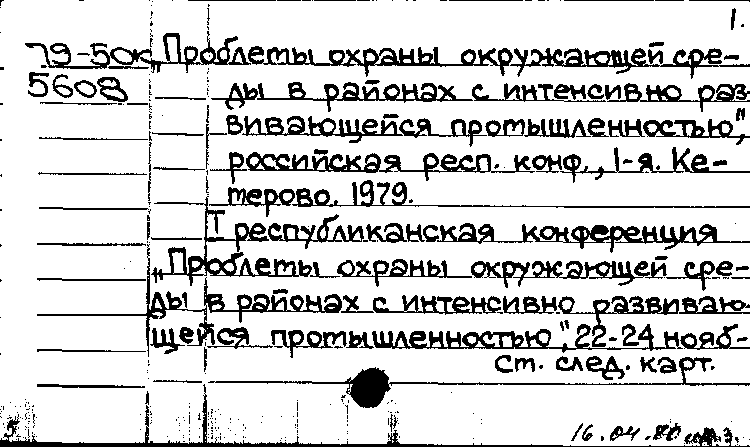 1.
79-50к „Проблемы охраны окружающей сре-
5608 ды в районах с интенсивно раз-
вивающейся промышленностью",
российская респ. конф., 1-я. Ке-
мерово. 1979.
I республиканская конференция
„Проблемы охраны окружающей сре-
ды в районах с интенсивно развиваю-
щейся промышленностью", 22-24 нояб-
см. след. карт.
5
16.04.80